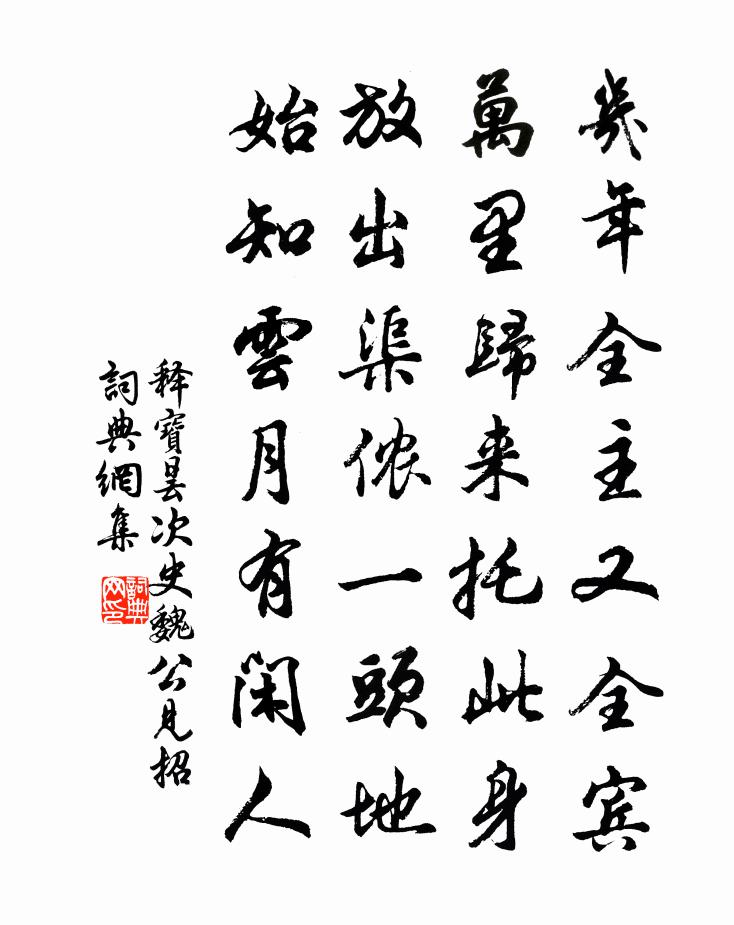 幾年全主又全賓
萬里歸来托此身
放出渠侬一頭地
始知雲月有閑人
释寶曇次史魏公見招
詞典網集
詞典
网印